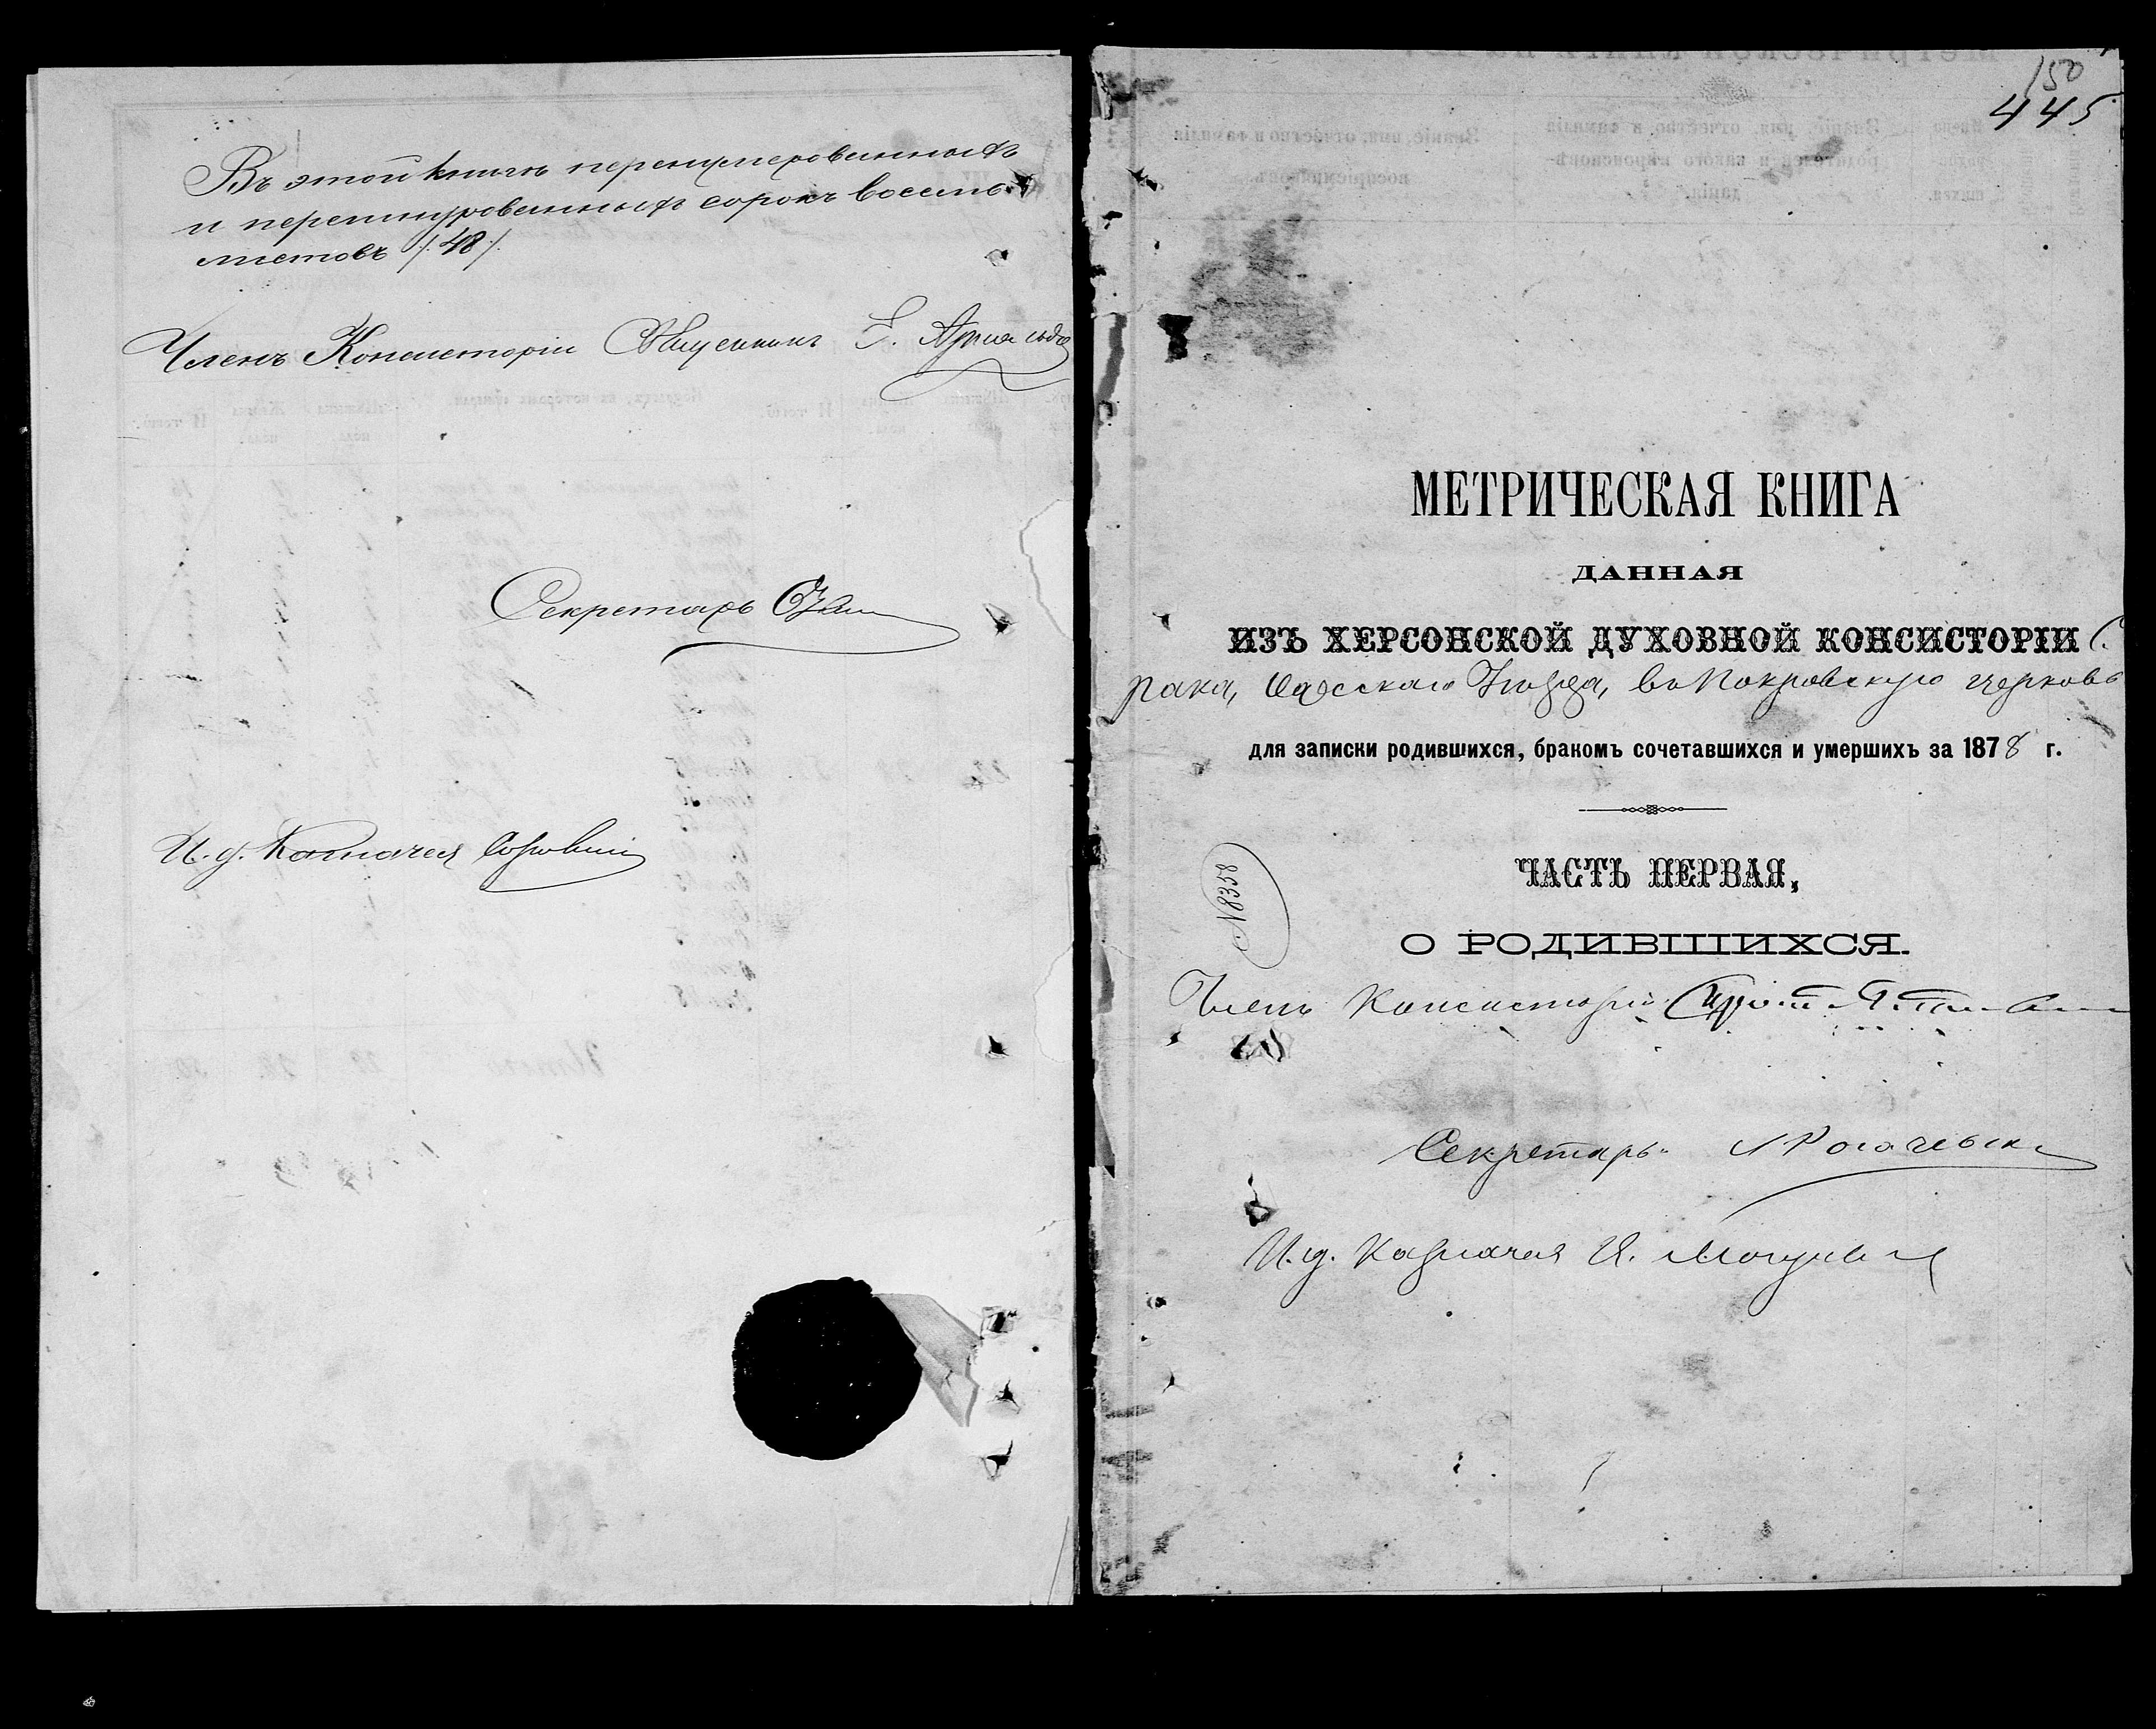 Въ этой книгѣ перенумерованныхъ
и перешнурованныхъ сорокъ восемь
листовъ /:48:/
Членъ Консисторіи Священникъ
Секретарь
И. д. Казначея
150
445
МЕТРИЧЕСКАЯ КНИГА
ДАННАЯ
ИЗЪ ХЕРСОНСКОЙ ДУХОВНОЙ КОНСИСТОРІИ С.
Уѣзда, въ Покровскую церковь
для записки родившихся, бракомъ сочетавшихся и умершихъ за 1878 г.
N 8358
ЧАСТЬ ПЕРВАЯ,
О РОДИВШИХСЯ.
Членъ Консисторіи Прот.
Секретарь
И. д. Казначея